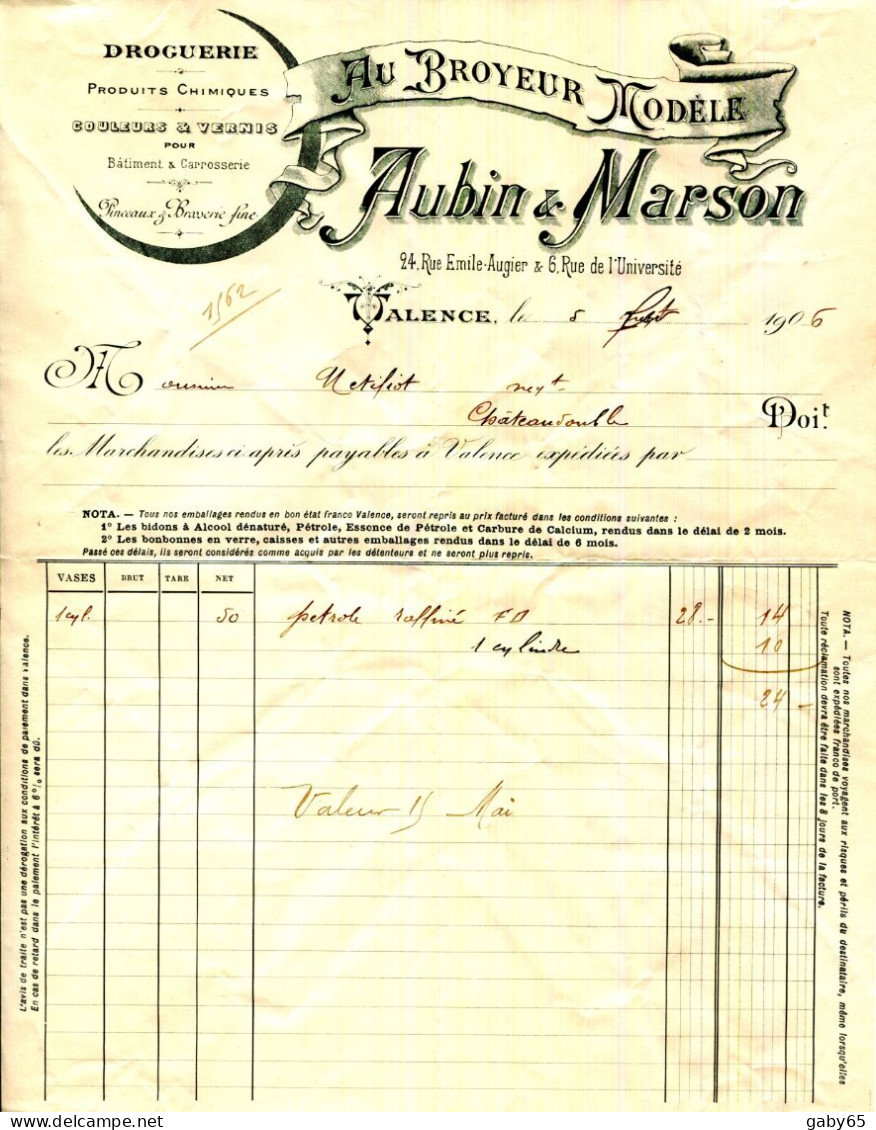 DROGUERIE
PRODUITS CHIMIQUES
COULEURS & VERNIS
POUR
Bâtiment & Carrosserie
Pinceaux & Brosserie fine
AU BROYEUR MODÈLE
Aubin & Marson
24, Rue Emile-Augier & 6, Rue de l'Université
1562
VALENCE, le 5 1906
Monsieur negt
Châteaudouble
Doit
les Marchandises ci après payables à Valence expédiées par
NOTA. — Tous nos emballages rendus en bon état franco Valence, seront repris au prix facturé dans les conditions suivantes :
1° Les bidons à Alcool dénaturé, Pétrole, Essence de Pétrole et Carbure de Calcium, rendus dans le délai de 2 mois.
2° Les bonbonnes en verre, caisses et autres emballages rendus dans le délai de 6 mois.
Passé ces délais, ils seront considérés comme acquis par les détenteurs et ne seront plus repris.
VASES BRUT TARE NET
1 cyl. 50 petrole raffiné FD 28.- 14
1 cylindre 10
24 -
Valeur 15 Mai
L'avis de traite n'est pas une dérogation aux conditions de paiement dans Valence.
En cas de retard dans le paiement l'intérêt à 6 % sera dû.
NOTA. — Toutes nos marchandises voyagent aux risques et périls du destinataire, même lorsqu'elles
sont expédiées franco de port.
Toute réclamation devra être faite dans les 8 jours de la facture.
gaby65